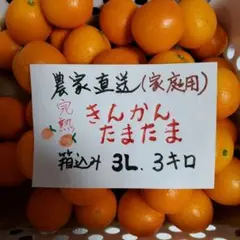 農家直送(家庭用)
完熟
きんかん
たまたま
箱込み 3L. 3キロ